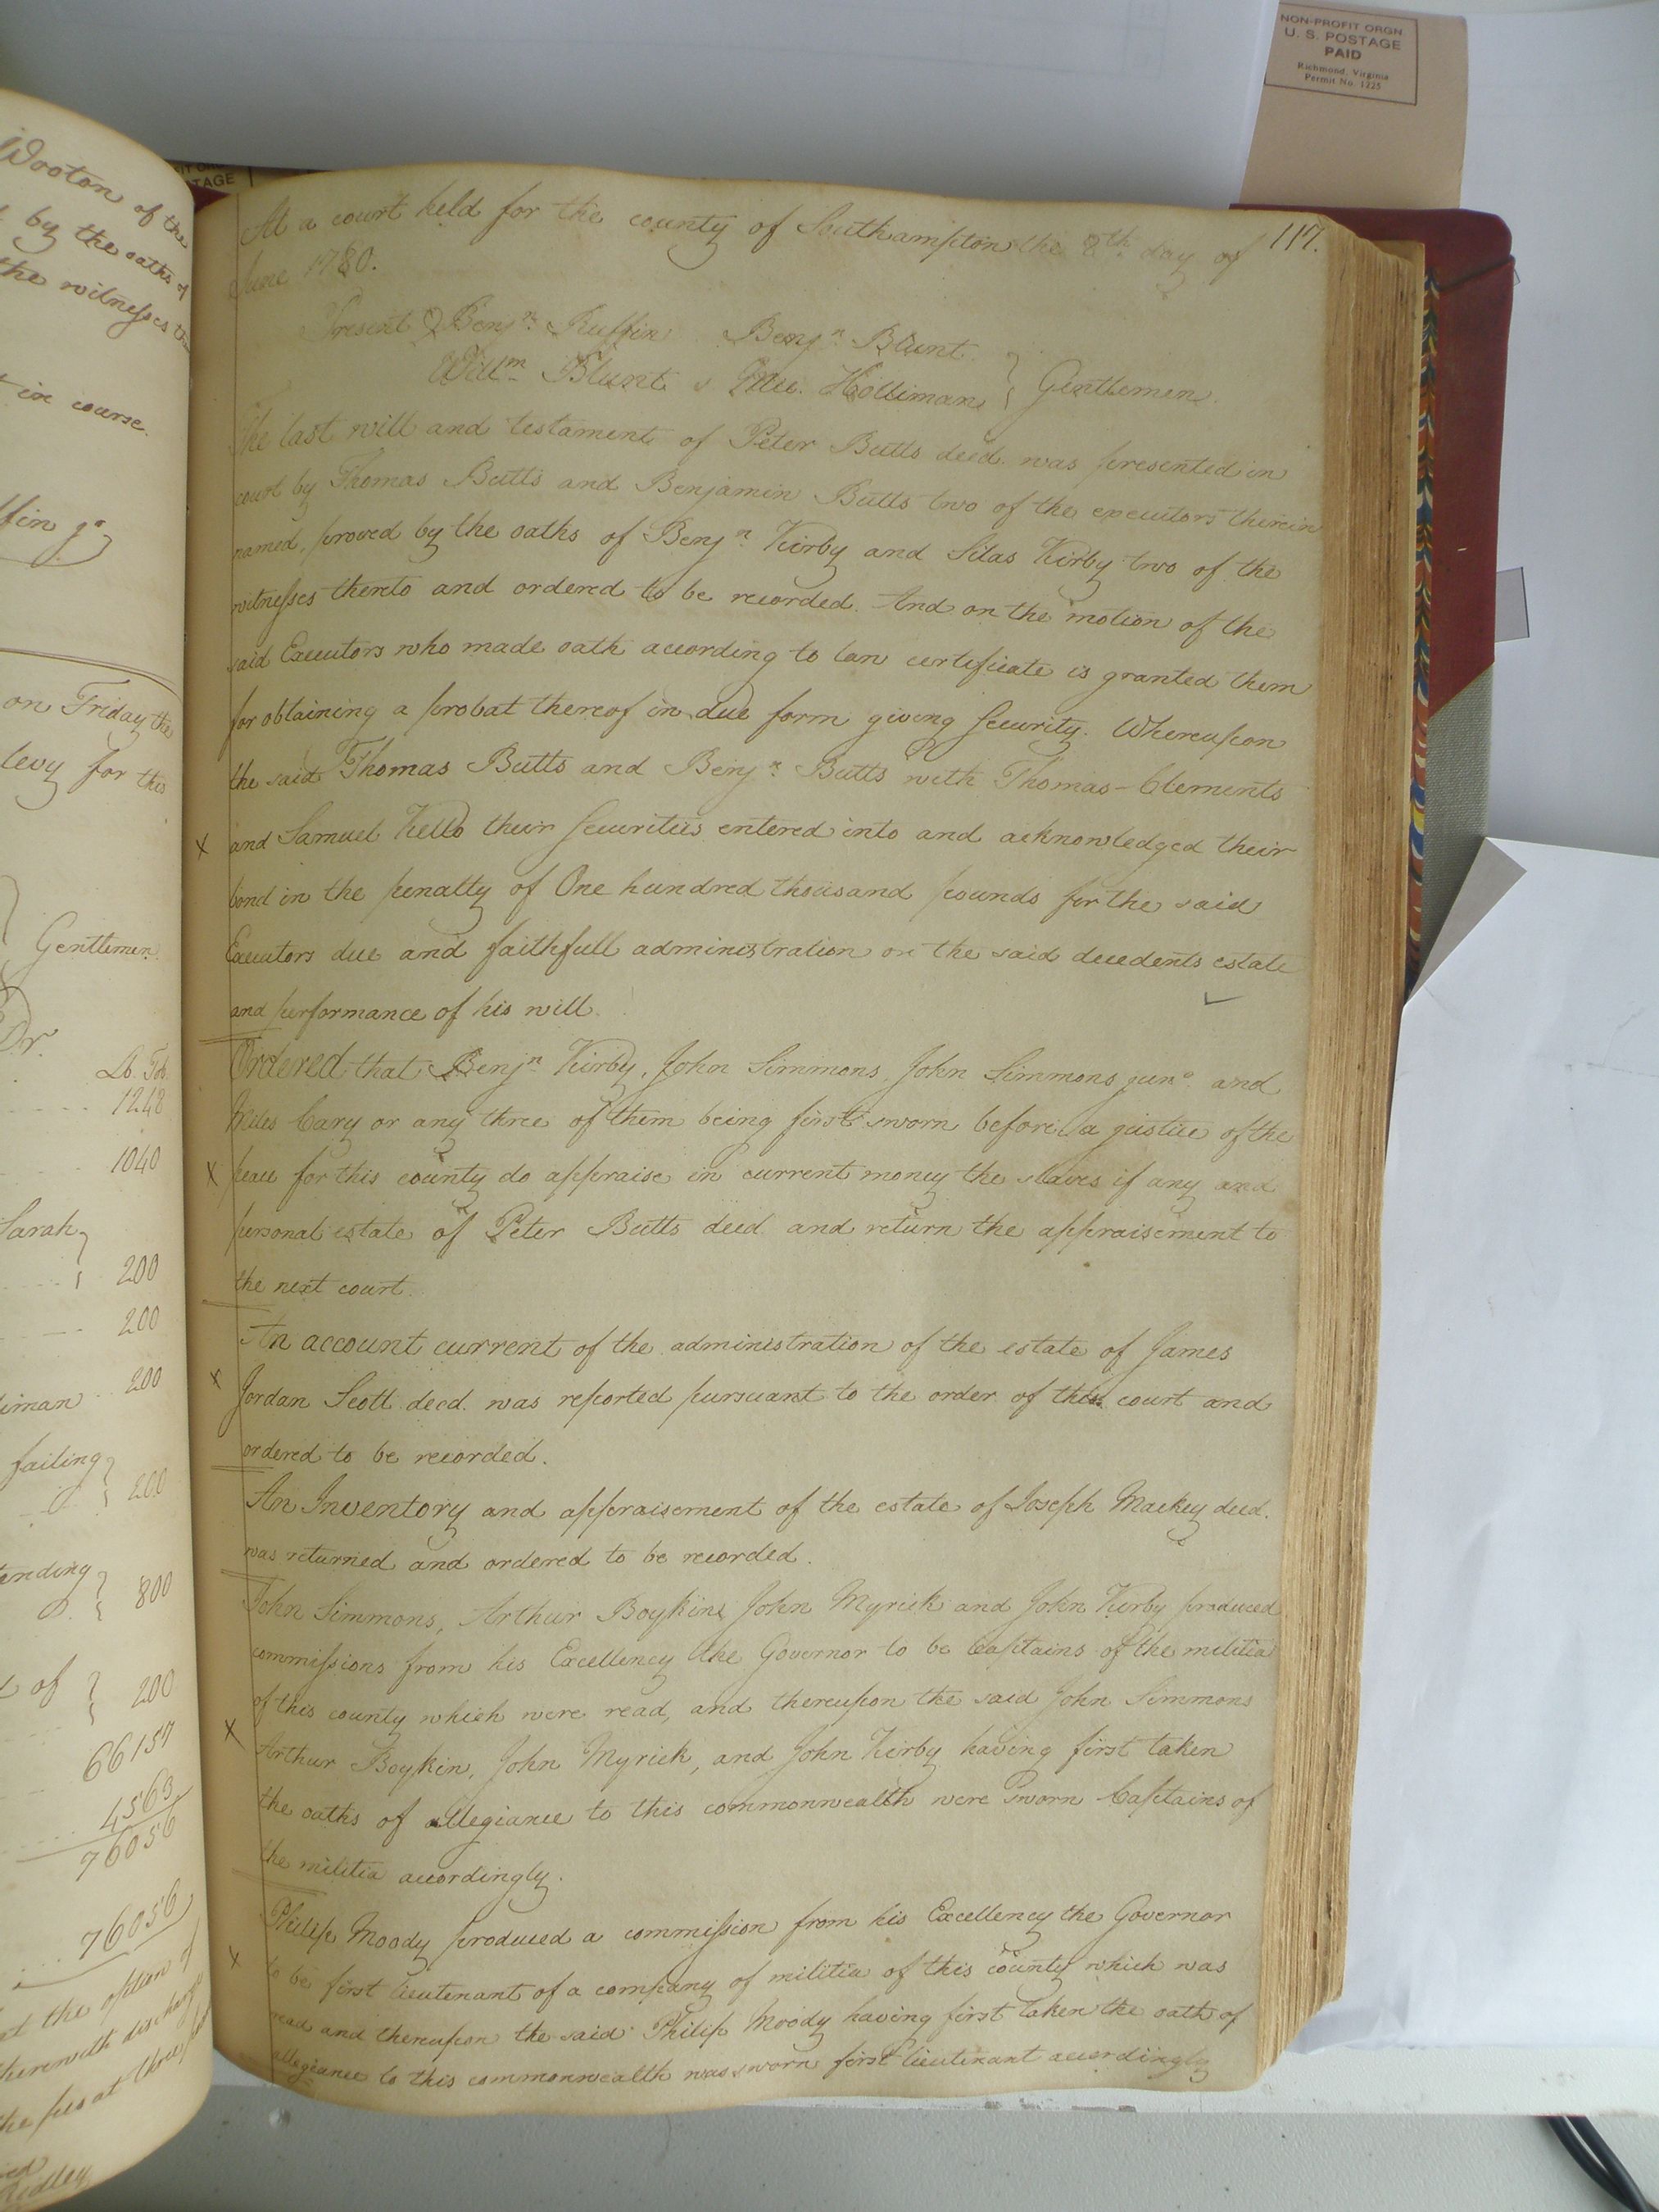 NON-PROFIT ORGN
U. S. POSTAGE
PAID
Richmond, Virginia
Permit No. 1225
TAGE
Wooton of the
by the oaths of
the witnesses
in course.
on Friday the
levy for this
Gentlemen
Dr.
Lb. Tob.
1248
1040
Sarah
200
200
200
failing
200
800
of 200
66157
4563
76056
76056
at the option of
therewith discharge
Ridley
117.
At a court held for the county of Southampton the 8th day of
June 1780.
Present Benjn Ruffin Benjn Blunt
Willm Blunt & Holliman Gentlemen.
The last will and testament of Peter Butts decd. was presented in
court by Thomas Butts and Benjamin Butts two of the executors therein
named, proved by the oaths of Benjn Kirby and Silas Kirby two of the
witnesses thereto and ordered to be recorded. And on the motion of the
said Executors who made oath according to law certificate is granted them
for obtaining a probat thereof in due form giving security. Whereupon
the said Thomas Butts and Benjn Butts with Thomas Clements
x and Samuel Kello their securities entered into and acknowledged their
bond in the penalty of One hundred thousand pounds for the said
Executors due and faithfull administration on the said decedents estate
and performance of his will.
Ordered that Benjn Kirby, John Simmons, John Simmons junr. and
Miles Cary or any three of them being first sworn before a justice of the
x peace for this county do appraise in current money the slaves if any and
personal estate of Peter Butts decd. and return the appraisement to
the next court.
An account current of the administration of the estate of James
x Jordan Scott decd. was reported pursuant to the order of this court and
ordered to be recorded.
An Inventory and appraisement of the estate of Joseph Mackey decd.
was returned and ordered to be recorded.
John Simmons, Arthur Boykin, John Myrick and John Kirby produced
commissions from his Excellency the Governor to be Captains of the militia
of this county which were read, and thereupon the said John Simmons
x Arthur Boykin, John Myrick, and John Kirby having first taken
the oaths of allegiance to this commonwealth were sworn Captains of
the militia accordingly.
Philip Moody produced a commission from his Excellency the Governor
x to be first lieutenant of a company of militia of this county which was
read and thereupon the said Philip Moody having first taken the oath of
allegiance to this commonwealth was sworn first lieutenant accordingly